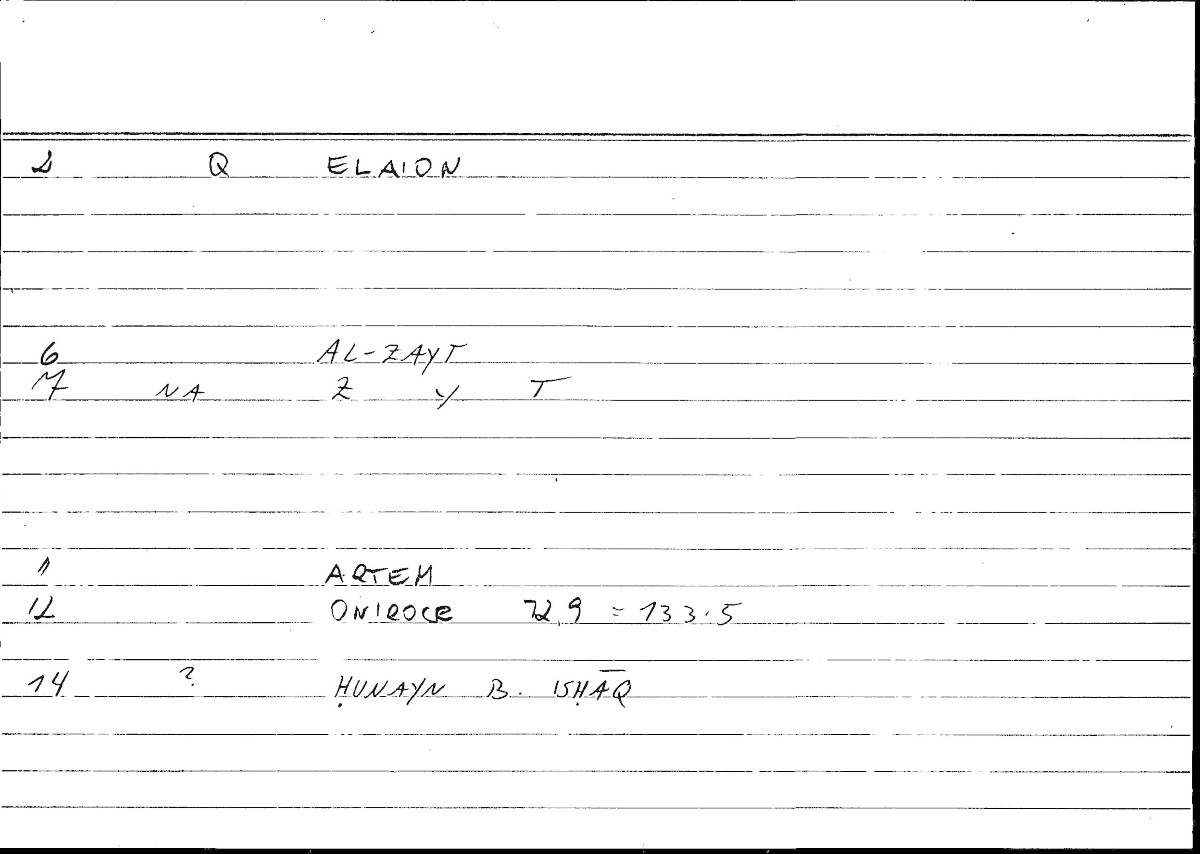 2 Q ELAION
6 AL-ZAYT
7 NA Z Y T
11 ARTEM
12 ONIROCR 72,9 = 133.5
14 ? ḤUNAYN B. ISḤĀQ